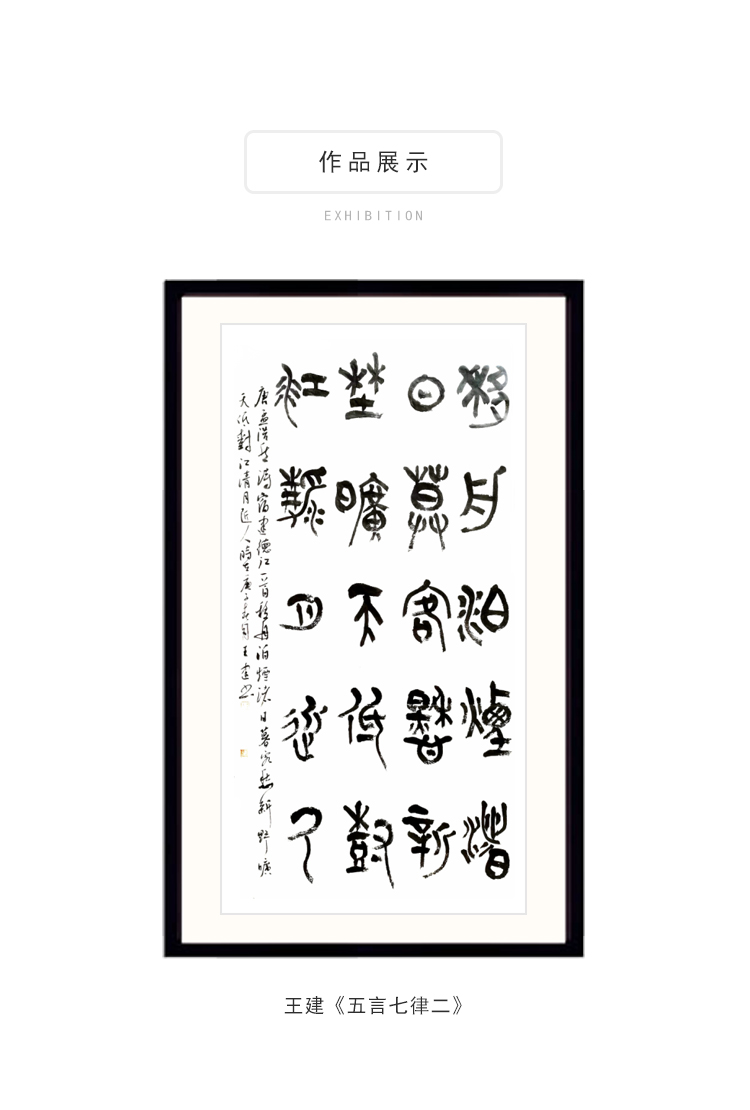 作品展示
EXHIBITION
移舟泊煙渚
日暮客愁新
野曠天低樹
江清月近人
唐孟浩然詩宿建德江一首移舟泊煙渚日暮客愁新野曠
天低樹江清月近人時在庚子春月王建
王建《五言七律二》